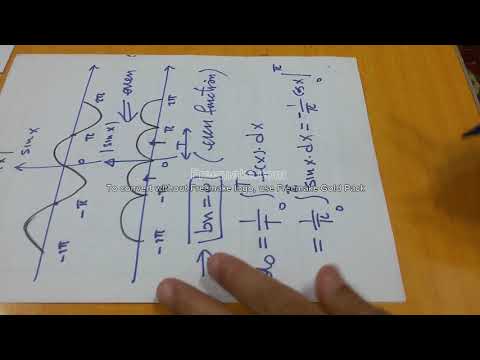 sin x
-2π
-π
0
π
2π
⇐ even
|sin x|
-2π
-π
0
π
2π
T
→ bn = 0 (even function)
a0 = 1/T ∫ f(x) · dx
0
= 1/π ∫ sin x · dx = -1/π cos x | π
0
0
Freemake.com
To convert without Freemake logo, use Freemake Gold Pack